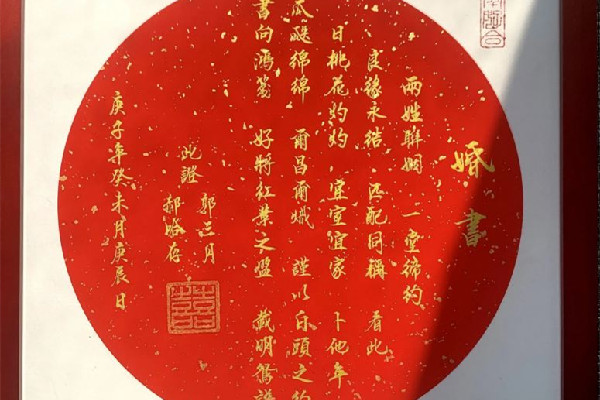 婚書
兩姓聯姻 一堂締約
良緣永結 匹配同稱 看此
日桃花灼灼 宜室宜家 卜他年
瓜瓞綿綿 爾昌爾熾 謹以白頭之約
書向鴻箋 好將紅葉之盟 載明鴛譜
此證
郭三月
郝 存
庚子年癸未月庚辰日
囍